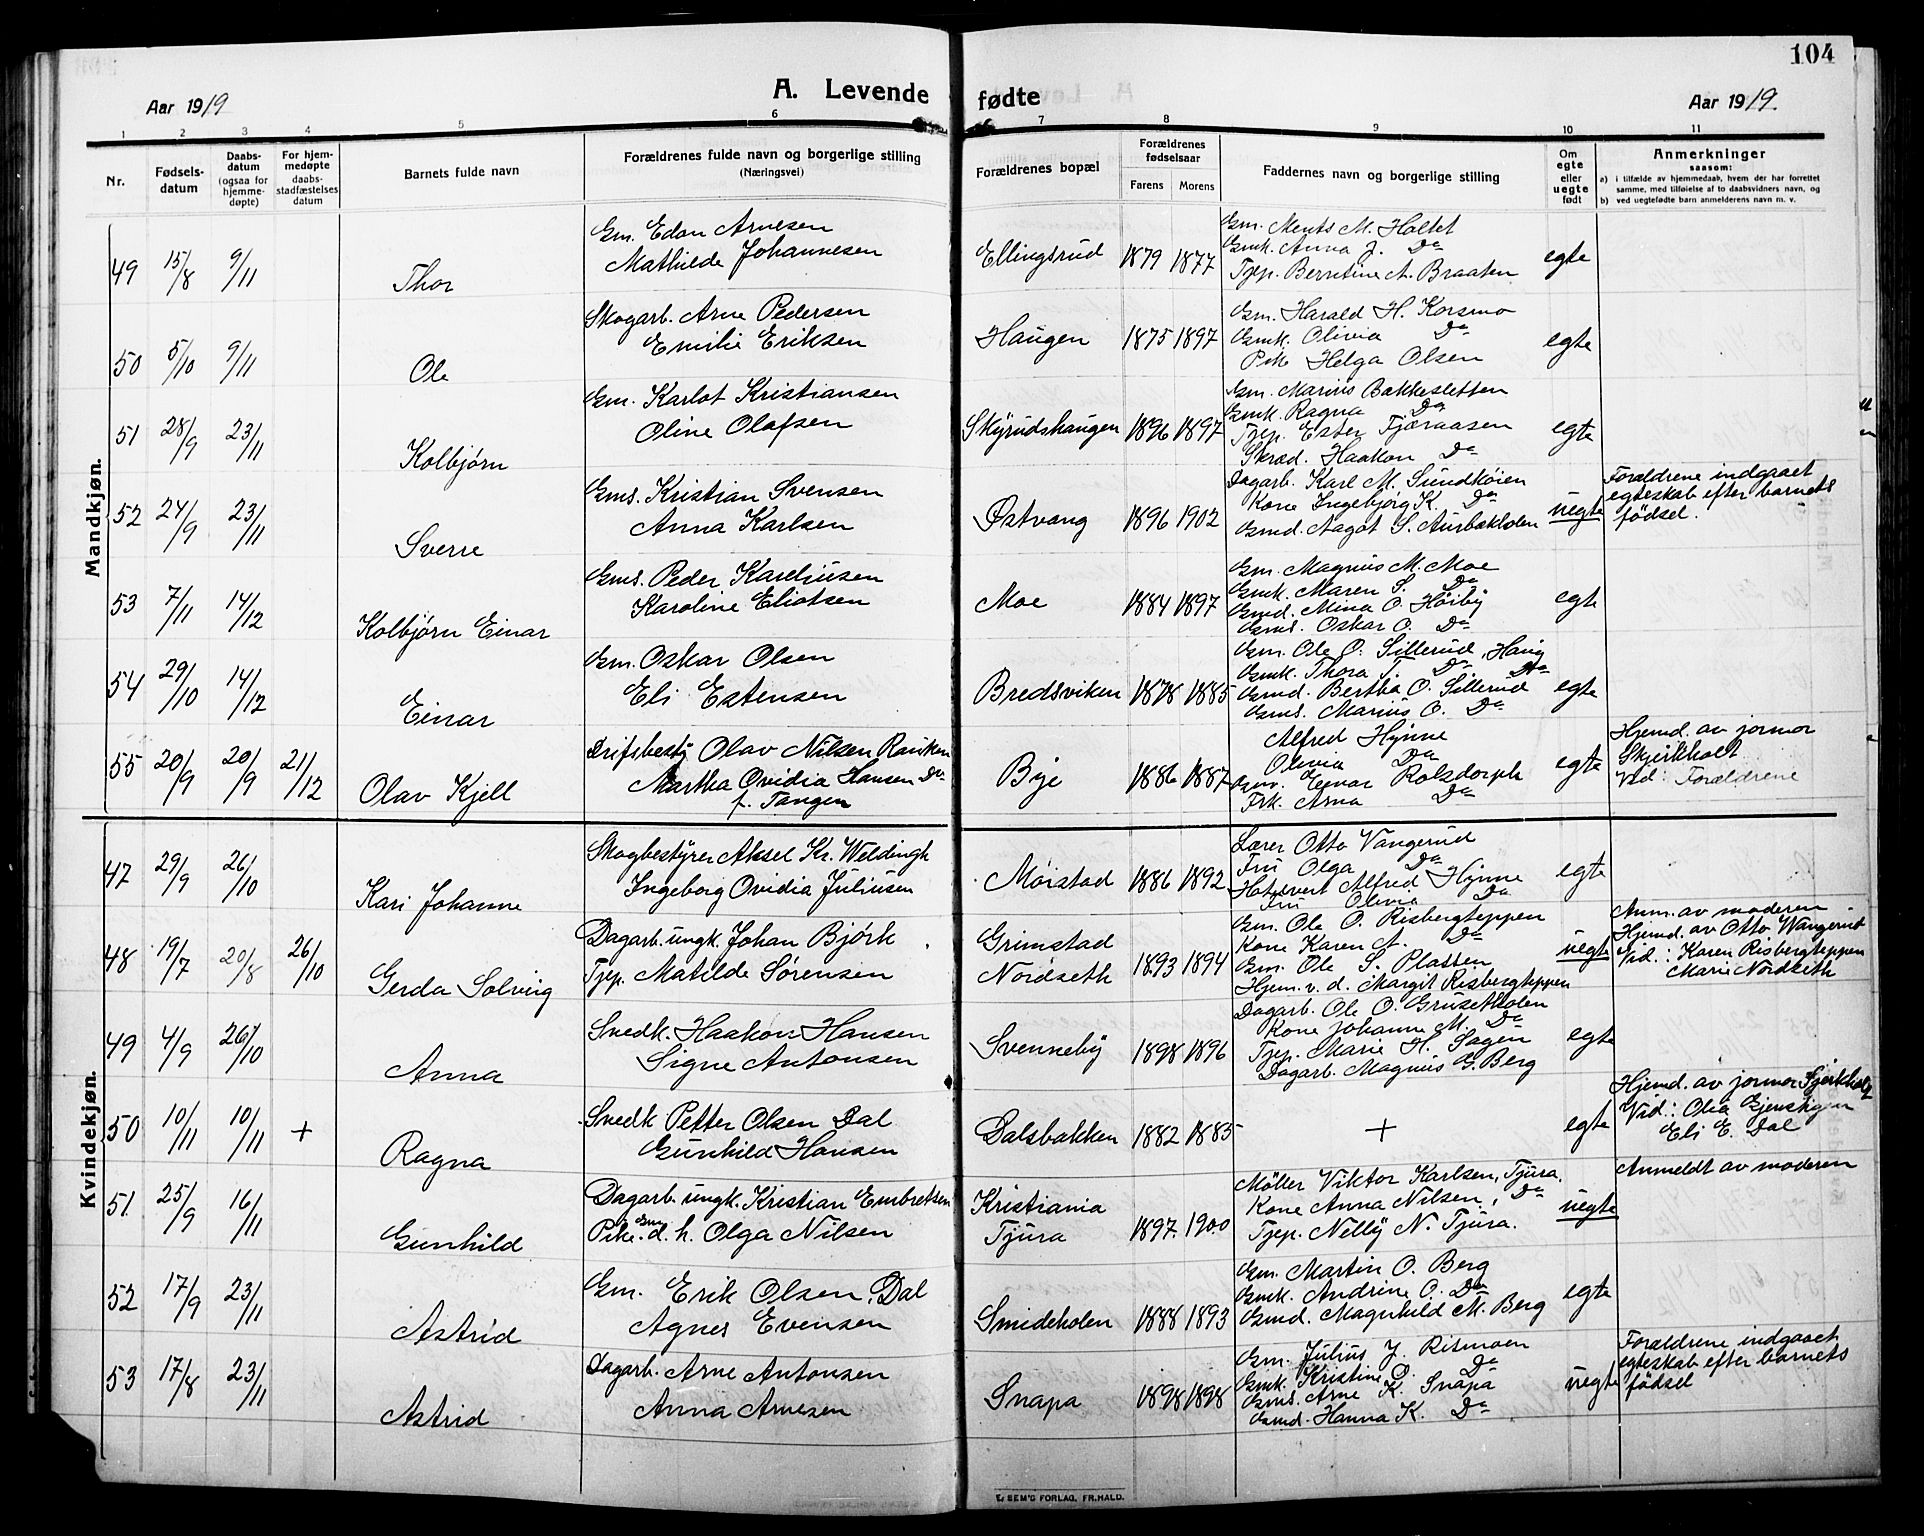 104
A. Levende fødte
Aar 1919
Aar 1919.
1 2 3 4 5 6 7 8 9 10 11
Nr.
Fødsels-
datum
Daabs-
datum
(ogsaa for
hjemme-
døpte)
For hjem-
medøpte
daabs-
stadfæstelses
datum
Barnets fulde navn
Forældrenes fulde navn og borgerlige stilling
(Næringsvei)
Forældrenes bopæl
Forældrenes
fødselsaar
Farens Morens
Faddernes navn og borgerlige stilling
Om
egte
eller
uegte
født
Anmerkninger
saasom:
a) i tilfælde av hjemmedaab, hvem der har forrettet
samme, med tilføielse af to daabsvidners navn, og
b) ved uegtefødte barn anmelderens navn m. v.
Mandkjøn.
49 15/8 9/11 Thor
Gm. Edon Arnesen
Mathilde Johannesen
Ellingsrud 1879 1877
Gm. Ments M. Holtet
Gmk. Anna J. Do
Tjep. Berntine A. Braaten
egte
50 5/10 9/11 Ole
Skogarb. Arne Pedersen
Emilie Eriksen
Haugen 1875 1897
Gm. Harald H. Korsmo
Gmk. Olivia Do
Pike Helga Olsen
egte
51 28/9 23/11 Kolbjørn
Gm. Karlot Kristiansen
Oline Olafsen
Skyrudshaugen 1896 1897
Gm. Marius Bakkesletten
Gmk. Ragna Do
Tjep. Ester Fjæraasen
Skræd. Haakon Do
egte
52 24/9 23/11 Sverre
Gms. Kristian Svensen
Anna Karlsen
Østvang 1896 1902
Dagarb. Karl M. Sundkøien
Kone Ingebjørg K. Do
Gmd. Aagot S. Aurbakholen
uegte
Forældrene indgaaet
egteskab efter barnets
fødsel.
53 7/11 14/12 Kolbjørn Einar
Gms. Peder Kareliusen
Karoline Eliotsen
Moe 1884 1897
Gm. Magnus M. Moe
Gmk. Maren S. Do
Gmd. Mina O. Høiby
Gms. Oskar O. Do
egte
54 29/10 14/12 Einar
Gm. Oskar Olsen
Eli Estensen
Bredsviken 1878 1885
Gm. Ole O. Sillerud, Haug
Gmk. Thora T. Do Do
Gmd. Bertha O. Sillerud
Gms. Marius O. Do
egte
55 20/9 20/9 21/12 Olav Kjell
Drifsbesty Olav Nilsen Ranken
Martha Ovidia Hansen Do
f. Tangen
Bye 1886 1887
Alfred Hynne
Olivia Do
Gm. Einar Rolsdorph
Frk. Arna Do
egte
Hjemd. av jormor
Skjerkholt
Vid: Forældrene
Kvindekjøn.
47 29/9 26/10 Kari Johanne
Skogbestyrer Aksel Kr. Weldingh
Ingeborg Ovidia Juliusen
Mørstad 1886 1892
Lærer Otto Vangerud
Fru Olga Do
Hotelvert Alfred Hynne
Fru Olivia Do
egte
48 19/7 20/8 26/10 Gerda Solveig
Dagarb. ungk. Johan Bjørk
Tjep. Matilde Sørensen
Grimstad
Nordseth
1893 1894
Gm. Ole O. Risbergteppen
Kone Karen A. Do
Gm. Ole S. Platten
Hjem. v. d. Margit Risbergteppen
uegte
Anm. av moderen
Hjemd. av Otto Wangerud
Vid.: Karen Risbergteppen
Marie Nordseth
49 4/9 26/10 Anna
Snedk. Haakon Hansen
Signe Antonsen
Svenneby 1898 1896
Dagarb. Ole O. Grusetholen
Kone Johanne M. Do
Tjep. Marie H. Sagen
Dagarb. Magnus G. Berg
egte
50 10/11 10/11 + Ragna
Snedk Petter Olsen Dal
Gunhild Hansen
Dalsbakken 1882 1885
+
egte
Hjemd. av jormor Skjerkholt
Vid: Olea Gjerstigen
Eli E. Dal
51 25/9 16/11 Gunhild
Dagarb. ungk. Kristian Embretsen
Pike. Gm. d. h. Olga Nilsen
Kristiania
Tjura
1897. 1900
Møller Viktor Karlsen, Tjura.
Kone Anna Nilsen, Do
Tjep. Nelly N. Tjura.
uegte
Anmeldt av moderen
52 17/9 23/11 Astrid
Gm. Erik Olsen, Dal
Agnes Evensen
Smideholen 1888 1893
Gm. Martin O. Berg
Gmk. Andrine O. Do
Gmd. Magnhild M. Berg
egte
53 17/8 23/11 Astrid
Dagarb. Arne Antonsen
Anna Arnesen
Snapa 1898 1898
Gm. Julius J. Rismoen
Gmk. Kristine P. Do
Gms. Arne K. Snapa
Gmd. Hanna K. Do
uegte
Forældrene indgaaet
egteskab efter barnets
fødsel
E. SEM'S FORLAG, FR.HALD.